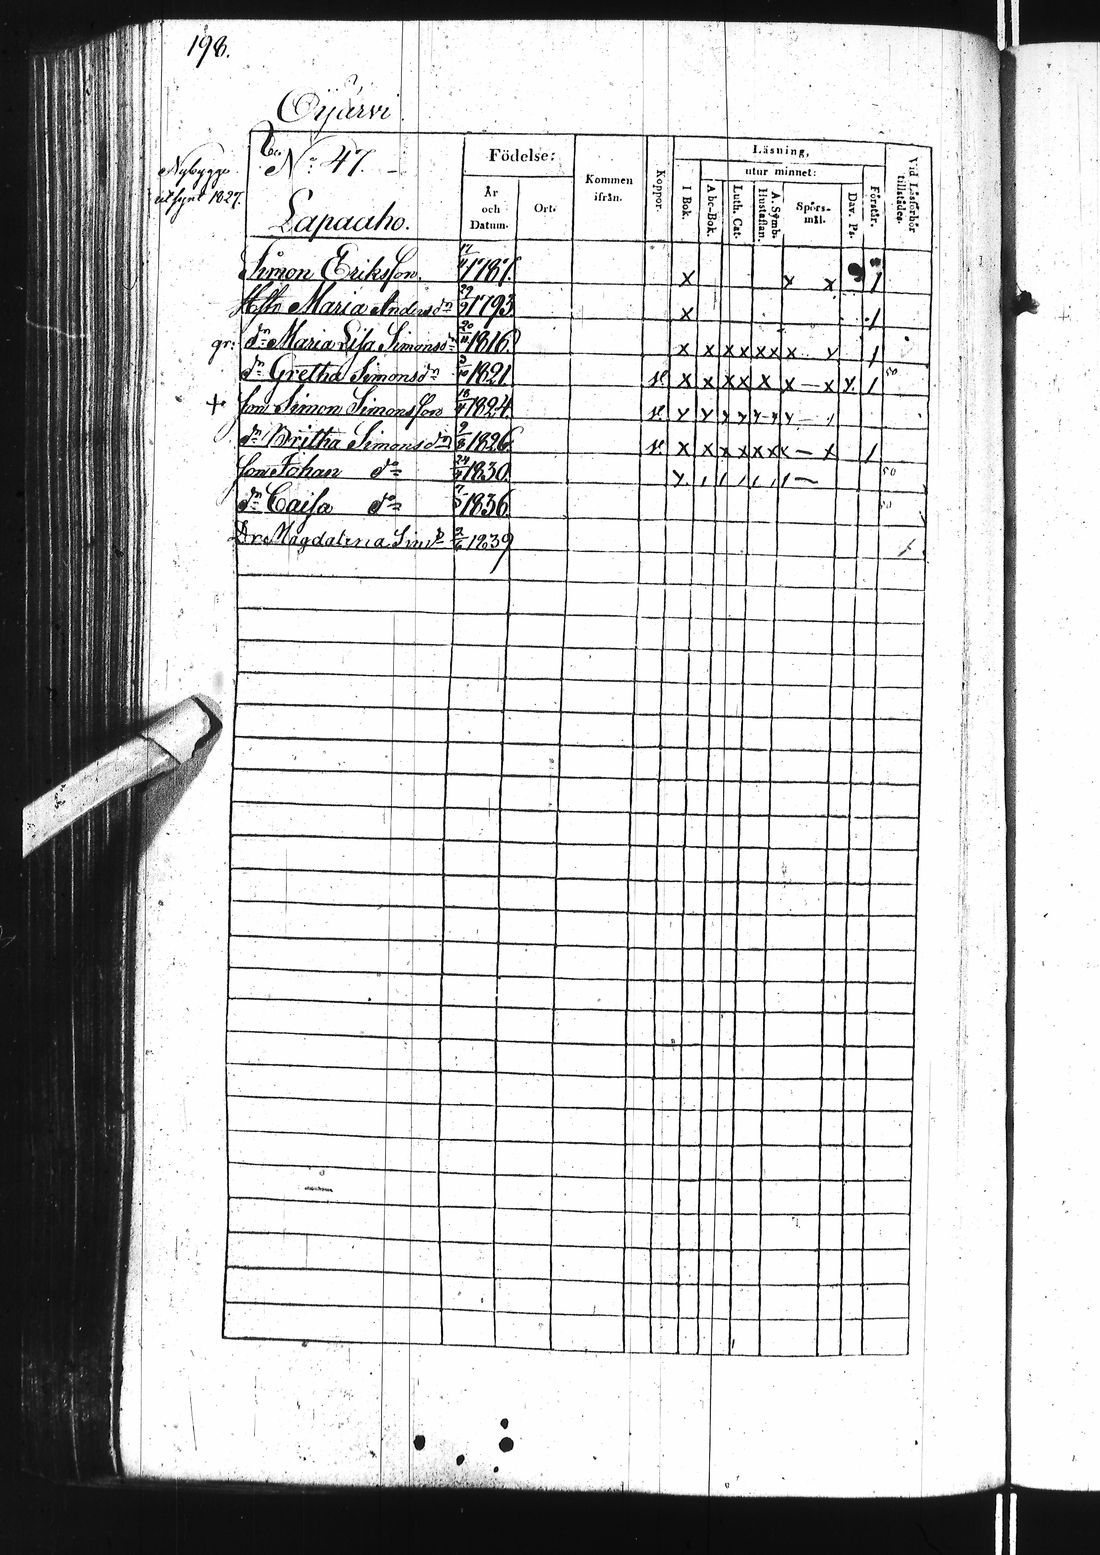 198.
Oijärvi
Nybygge
utsynt 1827.
No 47.
Lapaaho.
Födelse:
År
och
Datum.
Ort.
Kommen
ifrån.
Koppor.
Läsning,
utur minnet:
I Bok.
Abc-Bok.
Luth. Cat.
A. Symb.
Hustaflan.
Spörs-
mål.
Dav. Ps.
Förstår.
Vid Läsförhör
tillstädes.
Simon Eriksson. 1787. x x x 1
Hstr Maria Andersdn 1793 x 1
gr: dn Maria Lisa Simonsdn 1816. x x x x x x x 1
dn Gretha Simonsdn 1821. x x x x x x – x 1 50
+ son Simon Simonsson 1824.
dn Britha Simonsdn 1826. x x x x x x x – x 1
son Johan do 1830. 50
dn Caisa do 1836. 50
Dr. Magdalena Simdr 2/6 1839